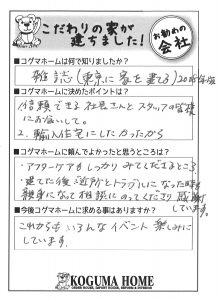 こだわりの家が
建ちました!
お勧めの
会社
■コグマホームは何で知りましたか?
雑誌(東京に家を建てる)2015年版
■コグマホームに決めたポイントは?
1.信頼できる社長さんとスタッフの皆様
にお会いして。
2.輸入住宅にしたかったから
■コグマホームに頼んでよかったと思うところは?
・アフターケアもしっかりみてくださるところ
・建てた後、近所とトラブルになった時も
親身になって相談にのってくださり感謝
しています。
■今後コグマホームに求める事はありますか?
これからもいろんなイベント楽しみに
しています。
KOGUMA HOME